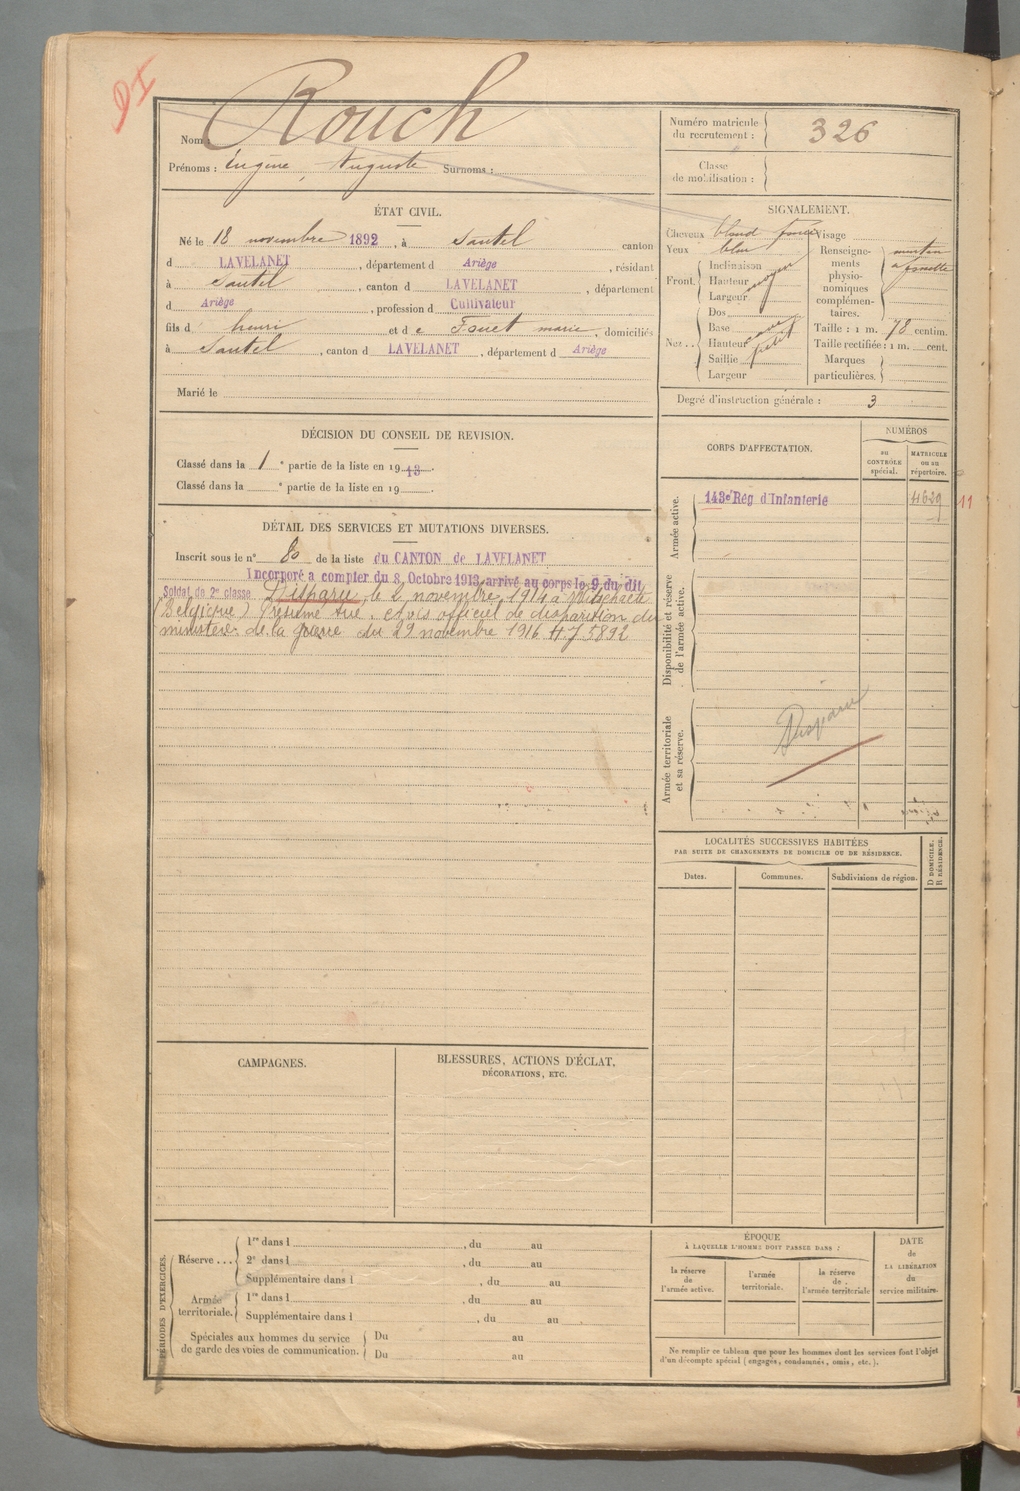 DI
Rouch
Nom :
Prénoms : Eugène, Auguste Surnoms :
Numéro matricule du recrutement : 326
Classe de mobilisation :
ÉTAT CIVIL.
Né le 18 novembre 1892, à Sautel canton
d LAVELANET, département d Ariège, résidant
à Sautel, canton d LAVELANET, département
d Ariège, profession d Cultivateur
fils d henri et de marie, domiciliés
à Sautel, canton d LAVELANET, département d Ariège
Marié le
SIGNALEMENT.
Cheveux blond foncé
Yeux bleu
Front. Inclinaison
Hauteur moyen
Largeur
Nez.. Dos
Base
Hauteur
Saillie petit
Largeur
Visage
Renseignements physionomiques complémentaires. menton à fossette
Taille : 1 m. 78 centim.
Taille rectifiée : 1 m. cent.
Marques particulières.
Degré d'instruction générale : 3
DÉCISION DU CONSEIL DE REVISION.
Classé dans la 1 e partie de la liste en 1913.
Classé dans la e partie de la liste en 19 .
CORPS D'AFFECTATION.
NUMÉROS
au CONTRÔLE spécial.
MATRICULE ou au répertoire.
Armée active.
143e Rég d'Infanterie 4629 11
Disponibilité et réserve de l'armée active.
Armée territoriale et sa réserve.
Disparu
DÉTAIL DES SERVICES ET MUTATIONS DIVERSES.
Inscrit sous le n° 80 de la liste du CANTON de LAVELANET
Incorporé a compter du 8 Octobre 1913, arrivé au corps le 9 du dit
Soldat de 2e classe Disparu le 2 novembre 1914 à
(Belgique) présumé tué. avis officiel de disparition du
ministère de la guerre du 29 novembre 1916 5892
LOCALITÉS SUCCESSIVES HABITÉES
PAR SUITE DE CHANGEMENTS DE DOMICILE OU DE RÉSIDENCE.
Dates.
Communes.
Subdivisions de région.
D DOMICILE.
R RÉSIDENCE.
CAMPAGNES.
BLESSURES, ACTIONS D'ÉCLAT,
DÉCORATIONS, ETC.
PÉRIODES D'EXERCICES.
Réserve ... 1re dans l , du au
2e dans l , du au
Supplémentaire dans l , du au
Armée territoriale. 1re dans l , du au
Supplémentaire dans l , du au
Spéciales aux hommes du service de garde des voies de communication. Du au
Du au
ÉPOQUE
À LAQUELLE L'HOMME DOIT PASSER DANS :
la réserve de l'armée active.
l'armée territoriale.
la réserve de l'armée territoriale
DATE de LA LIBÉRATION du service militaire.
Ne remplir ce tableau que pour les hommes dont les services font l'objet
d'un décompte spécial (engagés, condamnés, omis, etc.).